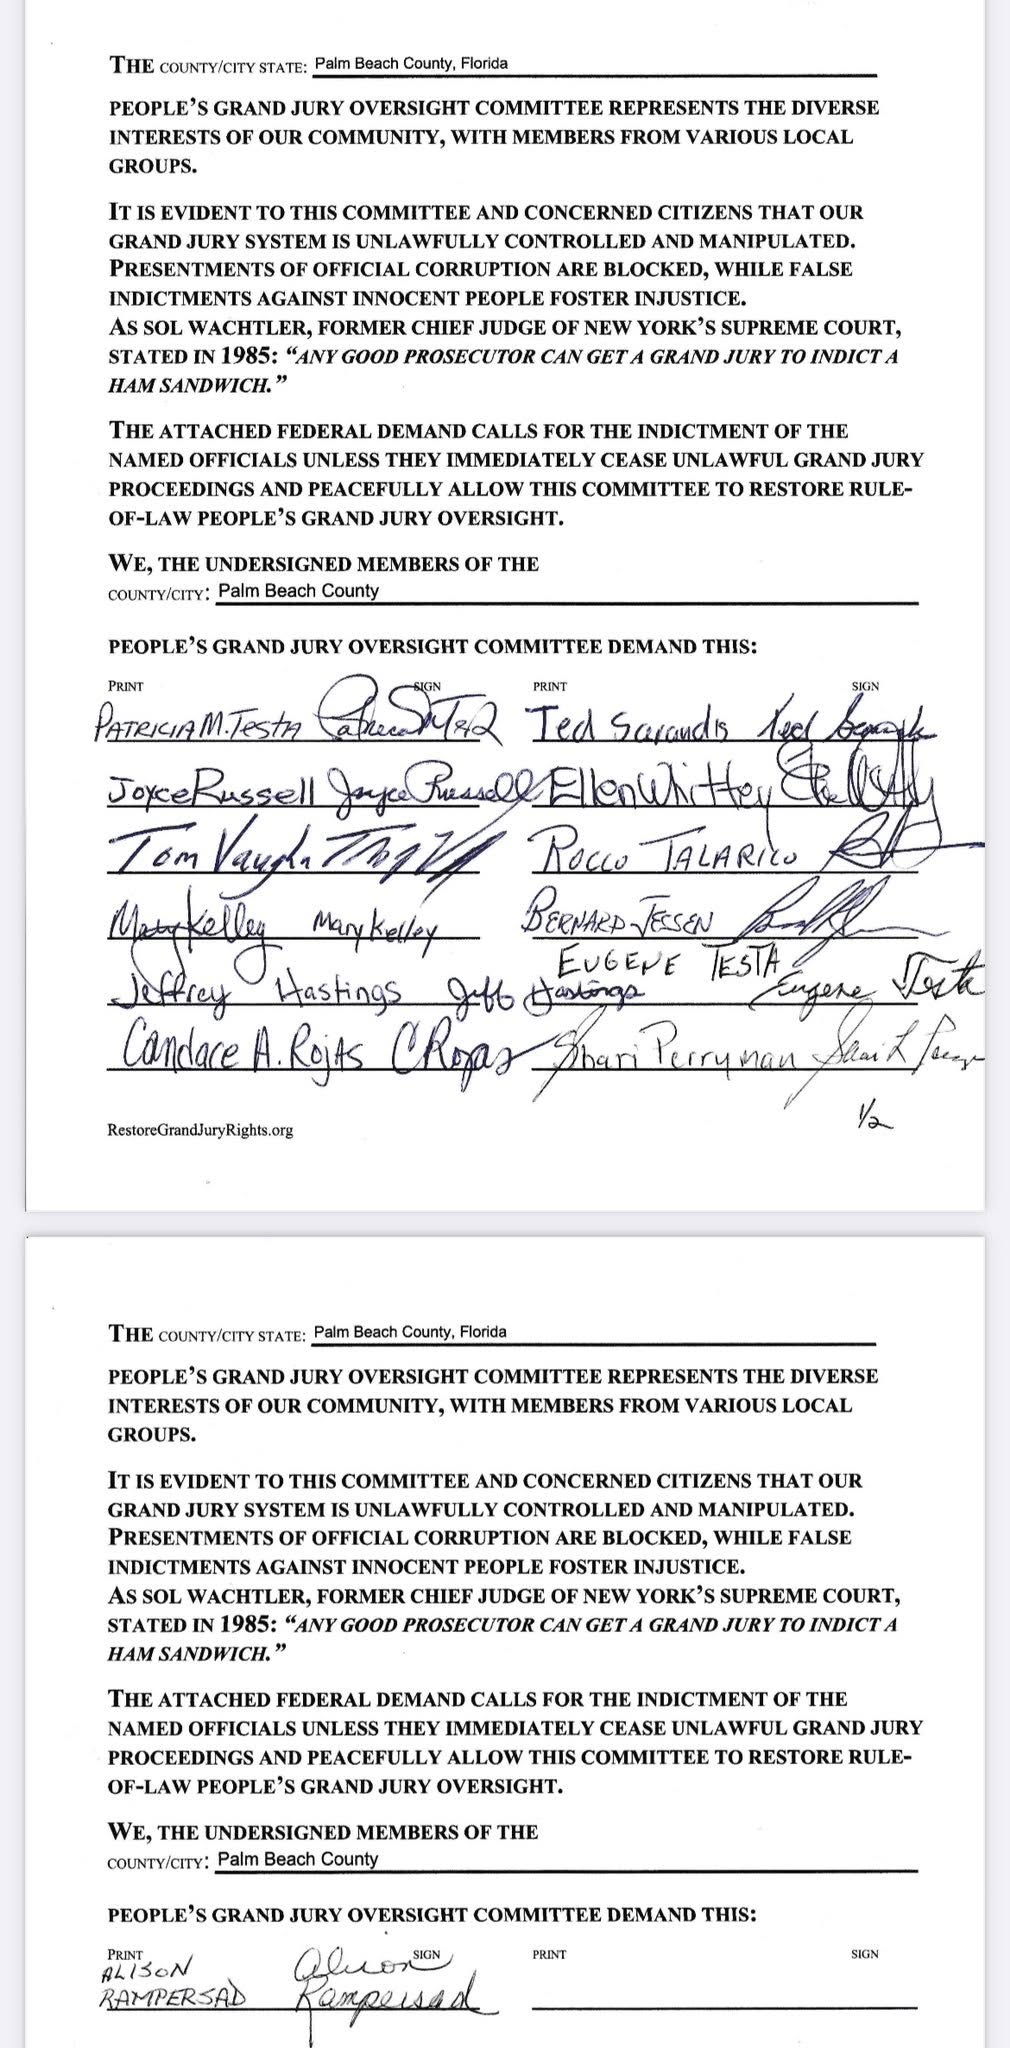 THE COUNTY/CITY STATE: Palm Beach County, Florida
PEOPLE'S GRAND JURY OVERSIGHT COMMITTEE REPRESENTS THE DIVERSE
INTERESTS OF OUR COMMUNITY, WITH MEMBERS FROM VARIOUS LOCAL
GROUPS.
IT IS EVIDENT TO THIS COMMITTEE AND CONCERNED CITIZENS THAT OUR
GRAND JURY SYSTEM IS UNLAWFULLY CONTROLLED AND MANIPULATED.
PRESENTMENTS OF OFFICIAL CORRUPTION ARE BLOCKED, WHILE FALSE
INDICTMENTS AGAINST INNOCENT PEOPLE FOSTER INJUSTICE.
AS SOL WACHTLER, FORMER CHIEF JUDGE OF NEW YORK'S SUPREME COURT,
STATED IN 1985: "ANY GOOD PROSECUTOR CAN GET A GRAND JURY TO INDICT A
HAM SANDWICH."
THE ATTACHED FEDERAL DEMAND CALLS FOR THE INDICTMENT OF THE
NAMED OFFICIALS UNLESS THEY IMMEDIATELY CEASE UNLAWFUL GRAND JURY
PROCEEDINGS AND PEACEFULLY ALLOW THIS COMMITTEE TO RESTORE RULE-
OF-LAW PEOPLE'S GRAND JURY OVERSIGHT.
WE, THE UNDERSIGNED MEMBERS OF THE
COUNTY/CITY: Palm Beach County
PEOPLE'S GRAND JURY OVERSIGHT COMMITTEE DEMAND THIS:
PRINT SIGN PRINT SIGN
PATRICIA M. TESTA Ted Sarandis Ted
Joyce Russell Joyce Russell Ellen Whittey
Tom Vaughn ROCCO TALARICO
Mary Kelley Mary Kelley BERNARD JESSEN
EUGENE TESTA
Jeffrey Hastings Jeff Hastings Eugene Testa
Candace A. Rojas C Rojas Shari Perryman
1/2
RestoreGrandJuryRights.org
THE COUNTY/CITY STATE: Palm Beach County, Florida
PEOPLE'S GRAND JURY OVERSIGHT COMMITTEE REPRESENTS THE DIVERSE
INTERESTS OF OUR COMMUNITY, WITH MEMBERS FROM VARIOUS LOCAL
GROUPS.
IT IS EVIDENT TO THIS COMMITTEE AND CONCERNED CITIZENS THAT OUR
GRAND JURY SYSTEM IS UNLAWFULLY CONTROLLED AND MANIPULATED.
PRESENTMENTS OF OFFICIAL CORRUPTION ARE BLOCKED, WHILE FALSE
INDICTMENTS AGAINST INNOCENT PEOPLE FOSTER INJUSTICE.
AS SOL WACHTLER, FORMER CHIEF JUDGE OF NEW YORK'S SUPREME COURT,
STATED IN 1985: "ANY GOOD PROSECUTOR CAN GET A GRAND JURY TO INDICT A
HAM SANDWICH."
THE ATTACHED FEDERAL DEMAND CALLS FOR THE INDICTMENT OF THE
NAMED OFFICIALS UNLESS THEY IMMEDIATELY CEASE UNLAWFUL GRAND JURY
PROCEEDINGS AND PEACEFULLY ALLOW THIS COMMITTEE TO RESTORE RULE-
OF-LAW PEOPLE'S GRAND JURY OVERSIGHT.
WE, THE UNDERSIGNED MEMBERS OF THE
COUNTY/CITY: Palm Beach County
PEOPLE'S GRAND JURY OVERSIGHT COMMITTEE DEMAND THIS:
PRINT SIGN PRINT SIGN
ALISON Alison
RAMPERSAD Rampersad